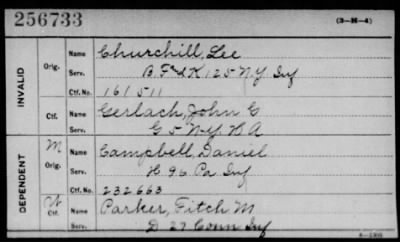 256733 (3-H-4)
INVALID
Orig. Name Churchill, Lee
Serv. B, F and K 125 N Y Inf
Ctf. No. 161511
Ctf. Name Gerlach, John G
Serv. G 5 N Y H A
DEPENDENT
M Orig. Name Campbell, Daniel
Serv. H 96 Pa Inf
Ctf. No. 232663
Ctf. Name Parker, Fitch M
Serv. D 27 Conn Inf